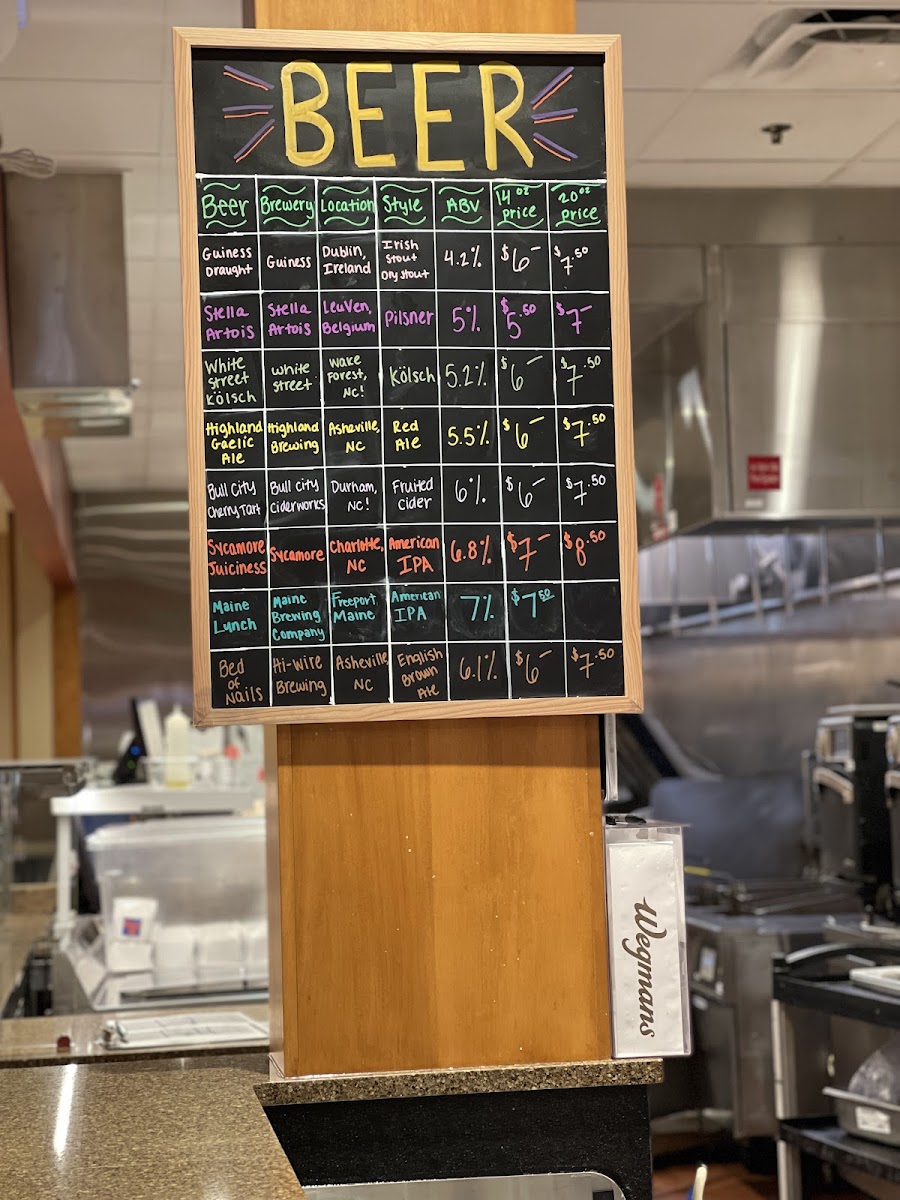 BEER
Beer Brewery Location Style ABV 14 oz price 20 oz price
Guiness Draught Guiness Dublin, Ireland Irish Stout Dry Stout 4.2% $6- $7.50
Stella Artois Stella Artois Leuven, Belgium Pilsner 5% $5.50 $7-
White Street Kölsch White Street Wake Forest, NC! Kölsch 5.2% $6- $7.50
Highland Gaelic Ale Highland Brewing Asheville, NC Red Ale 5.5% $6- $7.50
Bull City Cherry Tart Bull City Ciderworks Durham, NC! Fruited Cider 6% $6- $7.50
Sycamore Juiciness Sycamore Charlotte, NC American IPA 6.8% $7- $8.50
Maine Lunch Maine Brewing Company Freeport Maine American IPA 7% $7.50
Bed of Nails Hi-Wire Brewing Asheville NC English Brown Ale 6.1% $6- $7.50
Wegmans